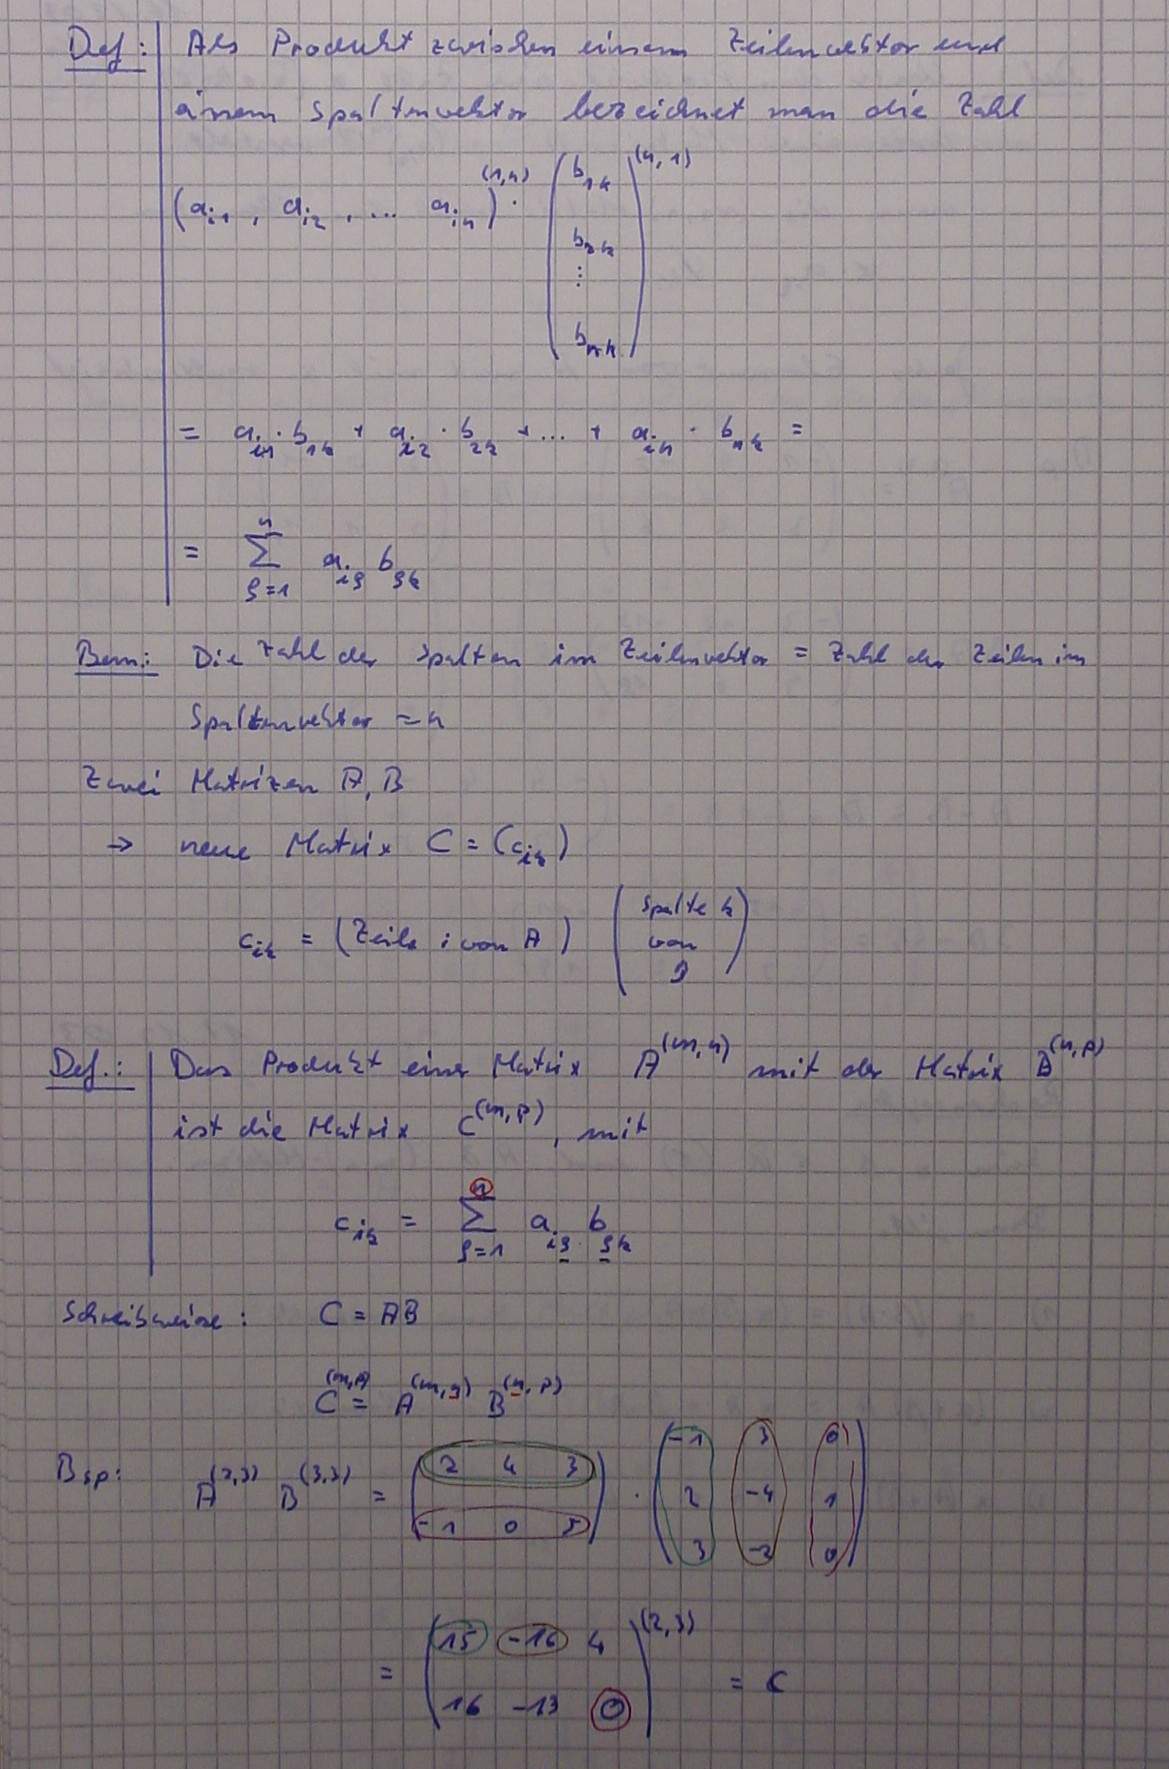 Def: Als Produkt zwischen einem Zeilenvektor und
einem Spaltenvektor bezeichnet man die Zahl
(a_i1 , a_i2 , ... a_in)^(1,n) · (b_1k b_2k ⋮ b_nk)^(n,1)
= a_i1 · b_1k + a_i2 · b_2k + ... + a_in · b_nk =
= Σ_{ρ=1}^{n} a_iρ b_ρk
Bem.: Die Zahl der Spalten im Zeilenvektor = Zahl der Zeilen im
Spaltenvektor = n
Zwei Matrizen A, B
→ neue Matrix C = (c_ik)
c_ik = (Zeile i von A) (Spalte k von B)
Def.: Das Produkt einer Matrix A^(m,n) mit der Matrix B^(n,p)
ist die Matrix C^(m,p), mit
c_ik = Σ_{ρ=1}^{n} a_iρ b_ρk
Schreibweise: C = AB
C^(m,p) = A^(m,n) B^(n,p)
Bsp: A^(2,3) B^(3,3) = (2 4 3 / -1 0 5) · (-1 3 0 / 2 -4 1 / 3 -2 0)
= (15 -16 4 / 16 -13 0)^(2,3) = C